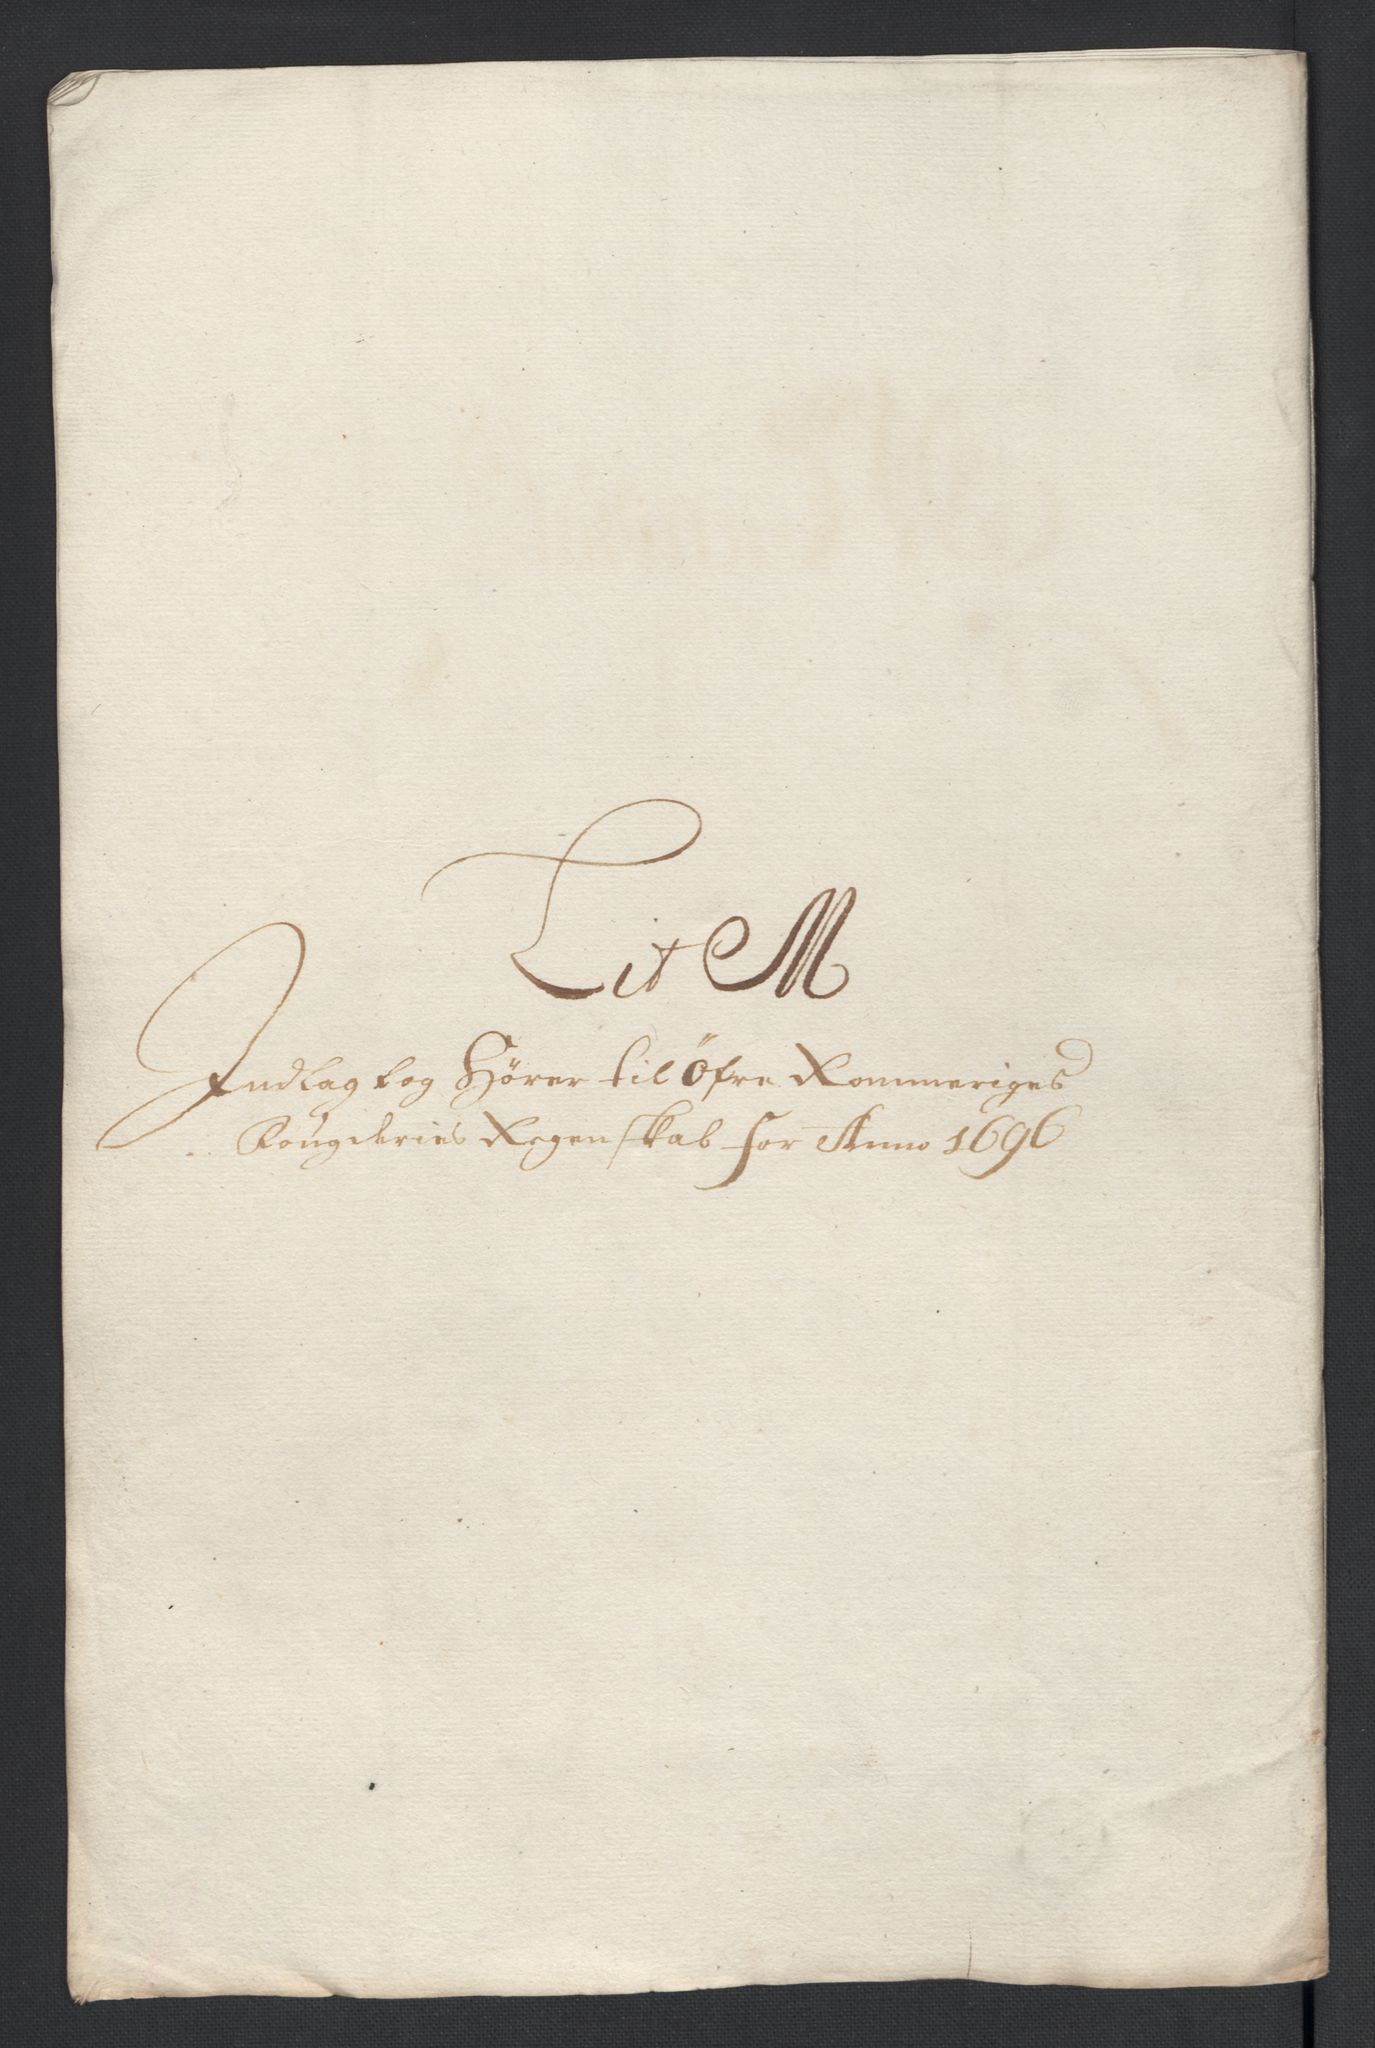 Lit M
Indlag log Hörer til Öfre Rommeriges
Fougderies Regenskab for Anno 1696